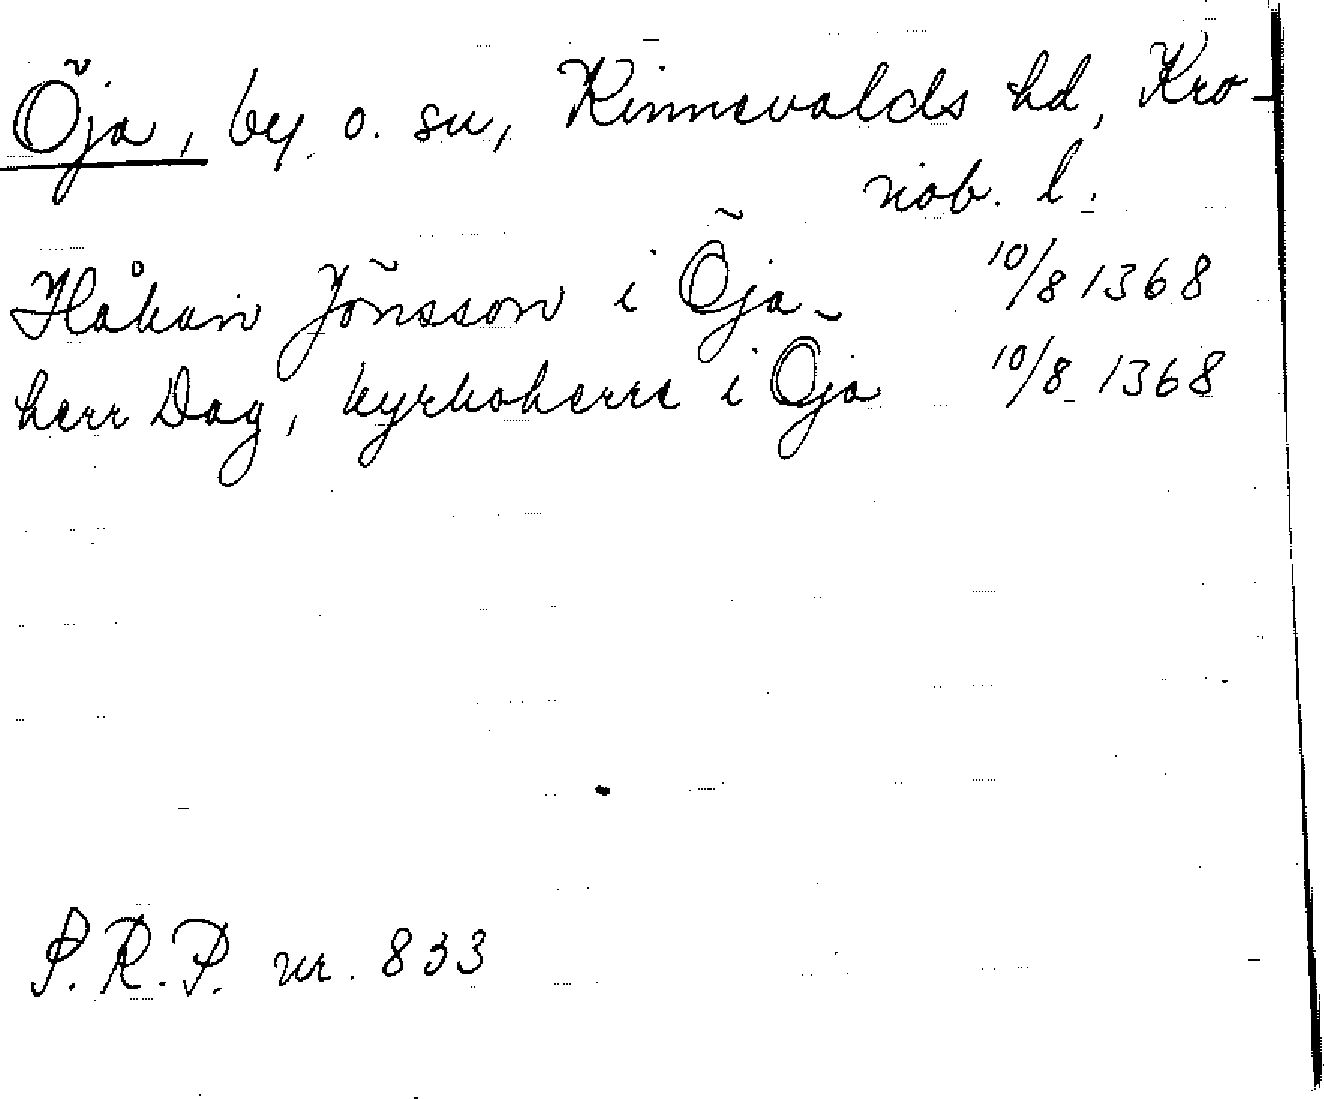 Öja, by o. sn, Kinnevalds hd, Kro-
nob. l.
Håkan Jönsson i Öja 10/8 1368
herr Dag, kyrkoherre i Öja 10/8 1368
S.R.P. nr. 833